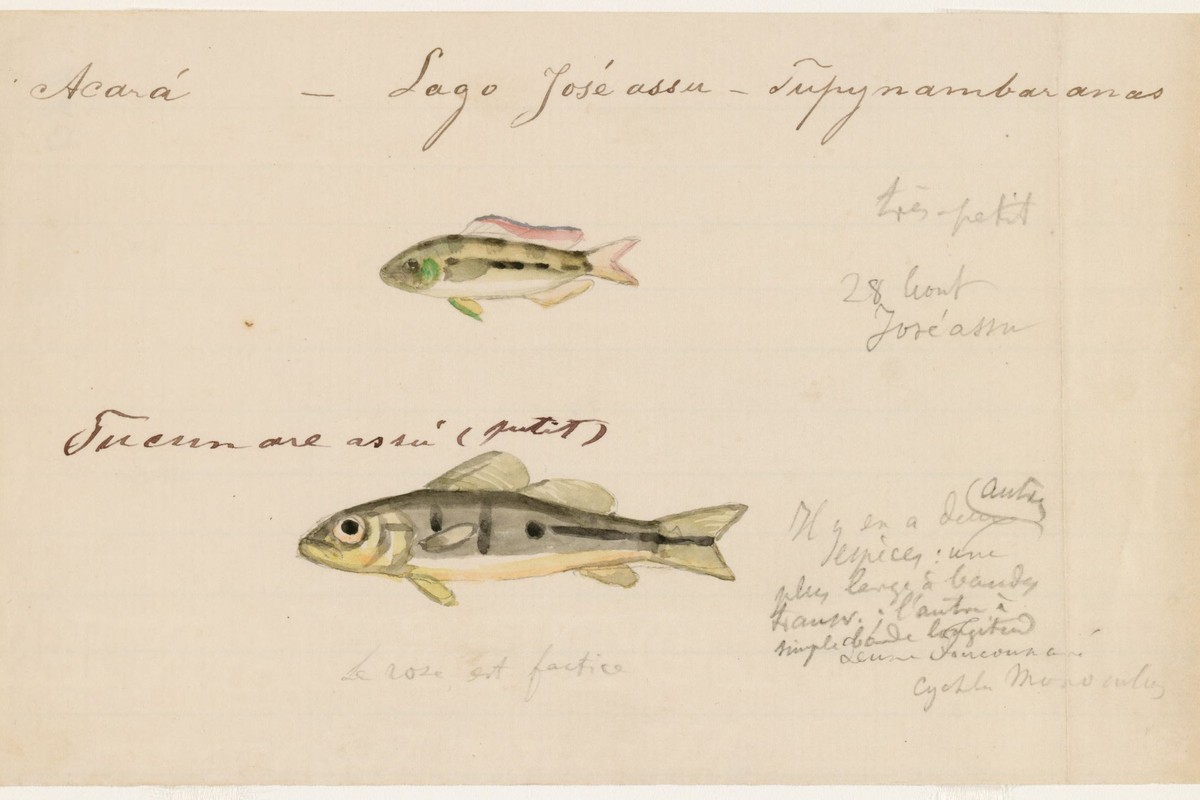 Acará — Lago José assu - Tupynambaranas
très-petit
28 Aout
José assu
Tucunare assú (petit)
autre
Il y en a deux
espèces : une
plus large à bandes
transv. ; l'autre à
simple bande longitud
Jeune Toucounaré
Cychla Monoculus
Le rose est factice